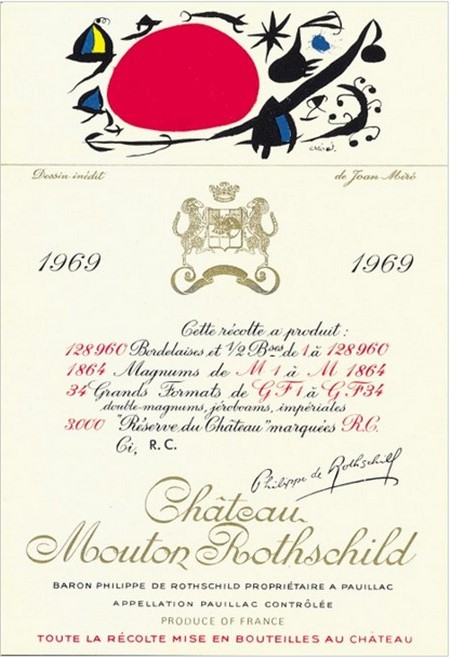 Miró.
Dessin inédit de Joan Miró
1969 1969
Cette récolte a produit :
128960 Bordelaises et 1/2 Bses de 1 à 128960
1864 Magnums de M 1 à M 1864
34 Grands Formats de G F 1 à G F 34
double-magnums, jéroboams, impériales
3.000 "Réserve du Château" marquées R.C.
Ci, R.C.
Philippe de Rothschild
Château
Mouton Rothschild
BARON PHILIPPE DE ROTHSCHILD PROPRIÉTAIRE A PAUILLAC
APPELLATION PAUILLAC CONTRÔLÉE
PRODUCE OF FRANCE
TOUTE LA RÉCOLTE MISE EN BOUTEILLES AU CHÂTEAU